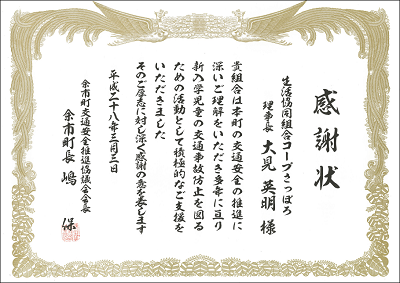 感謝状
生活協同組合コープさっぽろ
理事長 大見 英明 様
貴組合は本町の交通安全の推進に
深いご理解をいただき多年に亘り
新入学児童の交通事故防止を図る
ための活動として積極的なご支援を
いただきました
そのご厚志に対し深く感謝の意を表します
平成二十八年三月三日
余市町交通安全推進協議会会長
余市町長 嶋 保